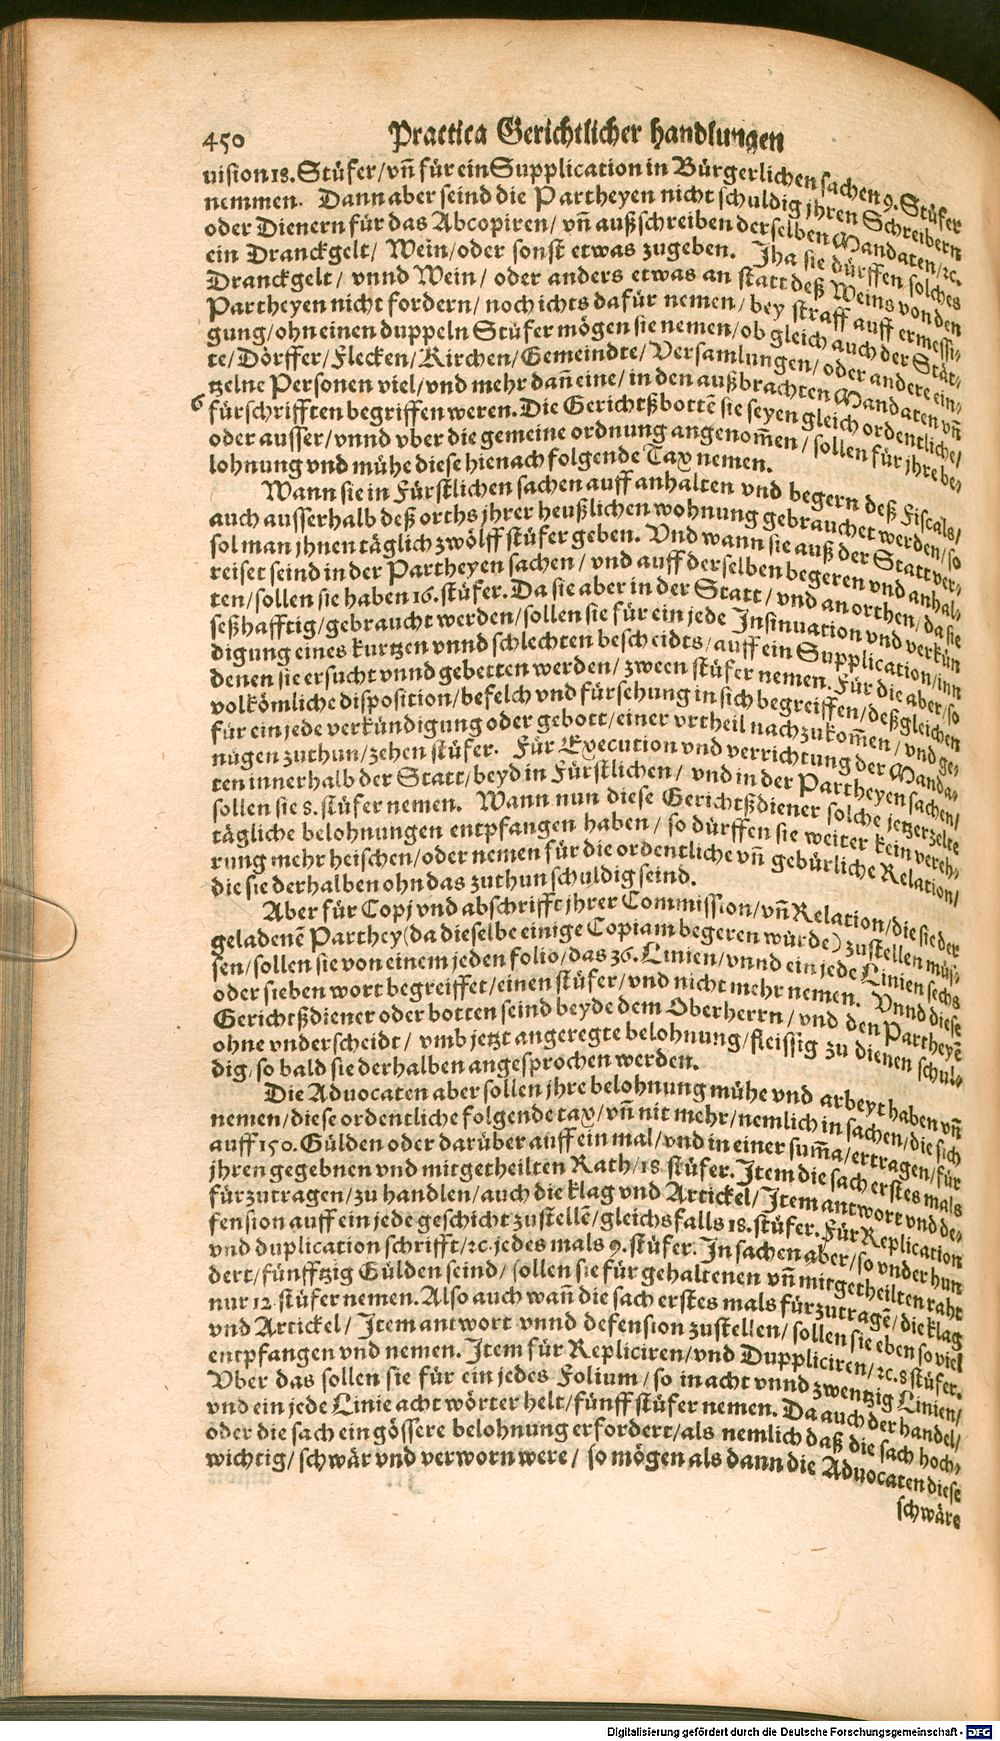 450 Practica Gerichtlicher handlungen
uision 18. Stüfer/vñ für ein Supplication in Bürgerlichen sachen 9. Stüfer
nemmen. Dann aber seind die Partheyen nicht schuldig jhren Schreibern
oder Dienern für das Abcopiren/ vñ außschreiben derselben Mandaten/ꝛc.
ein Dranckgelt/ Wein/oder sonst etwas zugeben. Jha sie dürffen solches
Dranckgelt/ vnnd Wein/ oder anders etwas an statt deß Weins von den
Partheyen nicht fordern/ noch ichts dafür nemen/ bey straff auff ermessi-
gung/ohn einen duppeln Stüfer mögen sie nemen/ob gleich auch der Stät-
te/Dörffer/Flecken/Kirchen/Gemeindte/Versamlungen/oder andere ein-
tzelne Personen viel/vnd mehr dañ eine/in den außbrachten Mandaten vñ
6 fürschrifften begriffen weren. Die Gerichtßbottē sie seyen gleich ordentliche/
oder ausser/vnnd vber die gemeine ordnung angenom̃en/sollen für jhre be-
lohnung vnd mühe diese hienach folgende Tax nemen.
Wann sie in Fürstlichen sachen auff anhalten vnd begern deß Fiscals/
auch ausserhalb deß orths jhrer heußlichen wohnung gebrauchet werden/so
sol man jhnen täglich zwölff stüfer geben. Vnd wann sie auß der Statt ver-
reiset seind in der Partheyen sachen/ vnd auff derselben begeren vnd anhal-
ten/sollen sie haben 16. stüfer. Da sie aber in der Statt/vnd an orthen/da sie
seßhafftig/gebraucht werden/sollen sie für ein jede Insinuation vnd verkün
digung eines kurtzen vnnd schlechten bescheidts/auff ein Supplication/inn
denen sie ersucht vnnd gebetten werden/ zween stüfer nemen. Für die aber/so
volkömliche disposition/befelch vnd fürsehung in sich begreiffen/deßgleichen
für ein jede verkündigung oder gebott/einer vrtheil nachzukom̃en/vnd ge-
nügen zuthun/zehen stüfer. Für Execution vnd verrichtung der Manda-
ten innerhalb der Statt/beyd in Fürstlichen/ vnd in der Partheyen sachen/
sollen sie 8. stüfer nemen. Wann nun diese Gerichtßdiener solche jetzerzelte
tägliche belohnungen entpfangen haben/ so dürffen sie weiter kein vereh-
rung mehr heischen/oder nemen für die ordentliche vñ gebürliche Relation/
die sie derhalben ohn das zuthun schuldig seind.
Aber für Copj vnd abschrifft jhrer Commission/vñ Relation/die sie der
geladenē Parthey(da dieselbe einige Copiam begeren würde) zustellen müs-
sen/sollen sie von einem jeden folio/das 36. Linien/vnnd ein jede Linien sechs
oder sieben wort begreiffet/einen stüfer/vnd nicht mehr nemen. Vnnd diese
Gerichtßdiener oder botten seind beyde dem Oberherrn/vnd den Partheyē
ohne vnderscheidt/ vmb jetzt angeregte belohnung/fleissig zu dienen schul-
dig/so bald sie derhalben angesprochen werden.
Die Aduocaten aber sollen jhre belohnung mühe vnd arbeyt haben vñ
nemen/diese ordentliche folgende tax/vñ nit mehr/nemlich in sachen/die sich
auff 150. Gülden oder darüber auff ein mal/vnd in einer sum̃a/ertragen/für
jhren gegebnen vnd mitgetheilten Rath/18 stüfer. Item die sach erstes mals
fürzutragen/zu handlen/auch die klag vnd Artickel/Item antwort vnd de-
fension auff ein jede geschicht zustellē/gleichsfalls 18. stüfer. Für Replication
vnd duplication schrifft/ꝛc. jedes mals 9. stüfer. In sachen aber/so vnder hun
dert/fünfftzig Gülden seind/ sollen sie für gehaltenen vñ mitgetheilten raht
nur 12 stüfer nemen. Also auch wañ die sach erstes mals fürzutragē/die klag
vnd Artickel/ Item antwort vnnd defension zustellen/ sollen sie eben so viel
entpfangen vnd nemen. Item für Repliciren/vnd Duppliciren/ꝛc. 8 stüfer.
Vber das sollen sie für ein jedes Folium/ so in acht vnnd zwentzig Linien/
vnd ein jede Linie acht wörter helt/fünff stüfer nemen. Da auch der handel/
oder die sach ein gössere belohnung erfordert/als nemlich daß die sach hoch-
wichtig/schwär vnd verworn were/ so mögen als dann die Aduocaten diese
schwäre
Digitalisierung gefördert durch die Deutsche Forschungsgemeinschaft - DFG